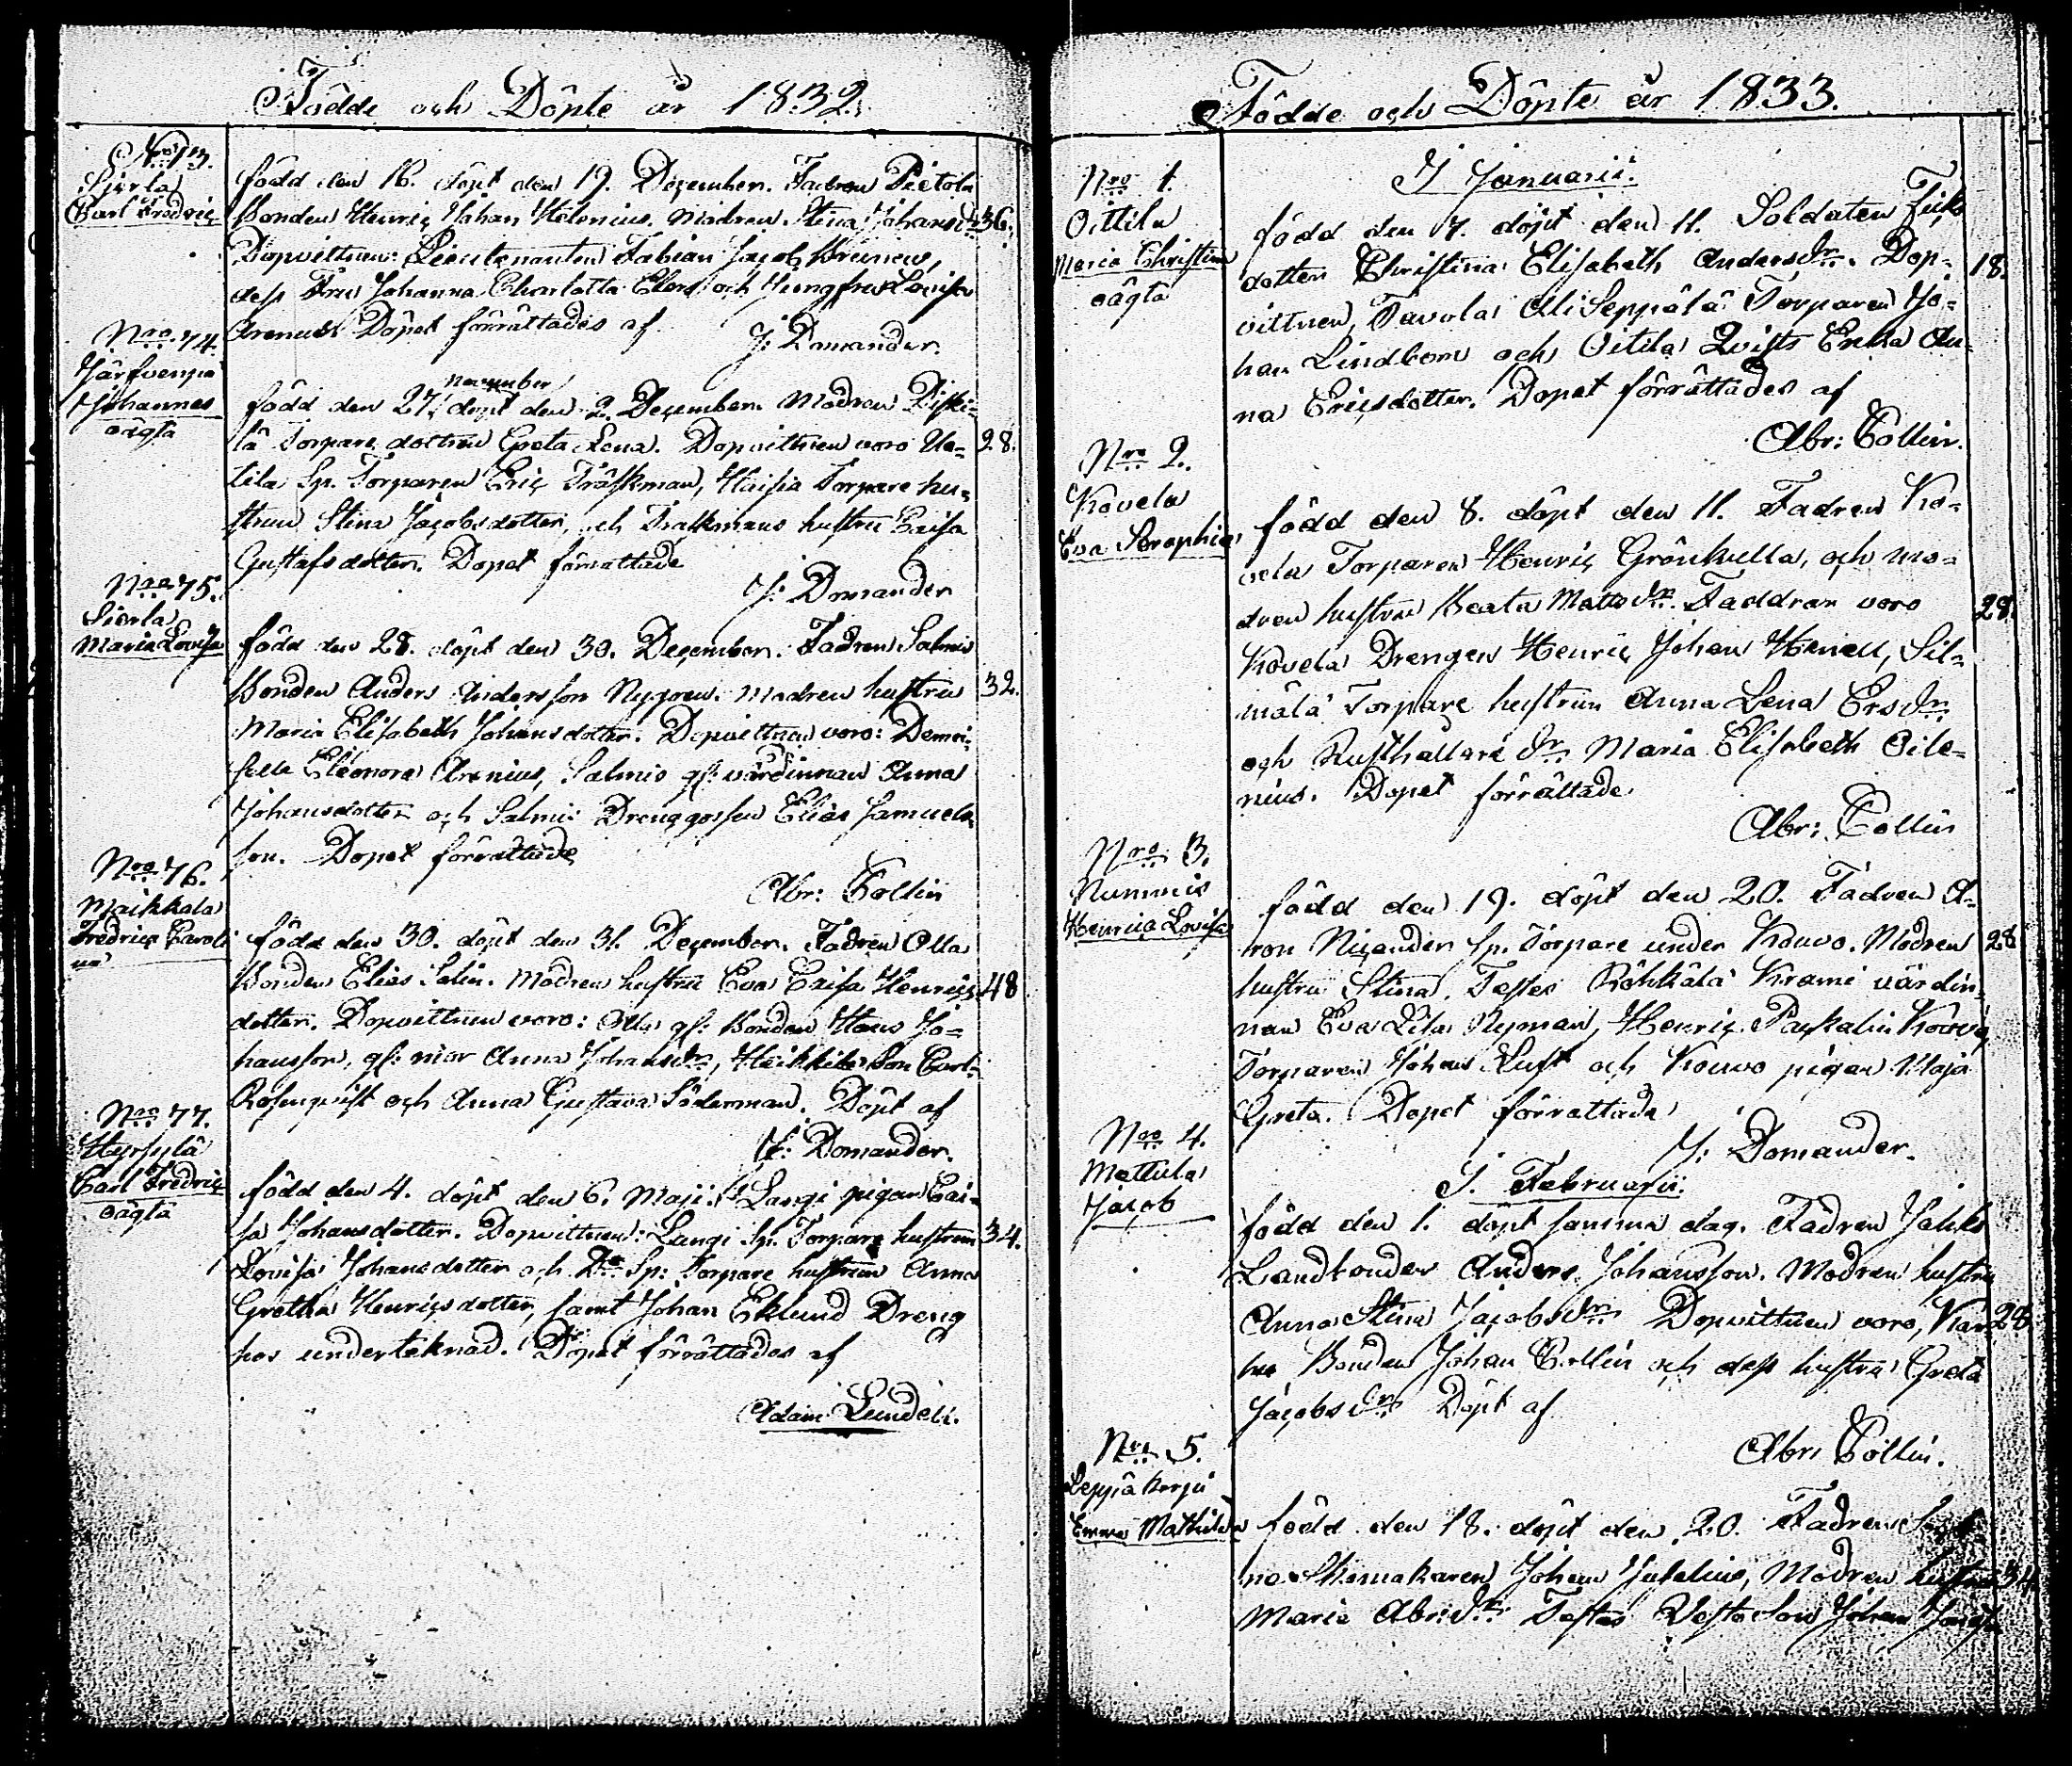 Födde och Döpte år 1832.
No 73.
Sierla
Carl Fredric
född den 16. döpt den 19. December. Fadren Pietola
Bonden Henric Johan Helenius. Modren Stina Johansdr 36.
Dopvittnen: Lieutenanten Fabian Jacob Brunow,
dess Fru Johanna Charlotta och Jungfru Lovisa
Arenius. Döpet förrättades af
J: Domander.
Nro 74.
Järfvenpä
Johannes
oägta
född den 27. november döpt den 2. December. Modren
lä Torpare dottren Greta Lena. Dopvittnen voro Ue- 28.
tila Sp. Torparen Eric Träskman, Torpare hu-
strun Stina Jacobsdotter, och Träskmans hustru Caisa
Gustafsdotter. Dopet förrättade
J: Domander
Nro 75.
Sierla
Maria Lovisa
född den 28. döpt den 30. December. Fadren Salmis
Bonden Anders Andersson Nygren. Modren hustru 32.
Maria Elisabeth Johansdotter. Dopvittnen voro: Demoi-
selle Eleonora Arenius, Salmis gl: värdinnan Anna
Johansdotter och Salmis Drenggossen Elias Samuels-
son. Dopet förrättade
Abr: Collin
Nro 76.
Maikkala
Fredrica Caroli
na
född den 30. döpt den 31. December. Fadren Olla
Bonden Elias Salin. Modren hustru Eva Caisa Henrics 48
dotter. Dopvittnen voro: Olla gl: Bonden Hans Jo-
hansson, gl: mor Anna Johansdr, Heikkilä Son Carl
Rosenqvist och Anna Gustava Söderman. Döpt af
J: Domander.
Nro 77.
Hyrsylä
Carl Fredric
oägta
född den 4. döpt den 6. Maji. Langi pigan Cai-
sa Johansdotter. Dopvittnen: Langi Sp. Torpare hustrun 34.
Lovisa Johansdotter och Do Sp: Torpare hustrun Anna
Gretha Henricsdotter, samt Johan Eklund Dreng
hos underteknad. Dopet förrättades af
Adam Lundell.
Födde och Döpte år 1833.
I Januarii.
Nro 1.
Oittila
Maria Christina
oägta
född den 7. döpt den 11. Soldaten
dotter Christina Elisabeth Andersdr. Dop- 18.
vittnen, Tavola Ali Seppälä Torparen Jo-
han Lindbom och Oitila Qvists Enka An-
na Ericsdotter. Dopet förrättades af
Abr: Collin.
Nro 2.
Kovela
Eva Serophia
född den 8. döpt den 11. Fadren Ko-
vela Torparen Henric Grönkulla, och mo-
dren hustru Beata Mattsdr. Faddrar voro 28.
Kovela Drengen Henric Johan Henell, Sil-
mälä Torpare hustrun Anna Lena Ersdr
och Rusthållare dr Maria Elisabeth Oile-
nius. Dopet förrättade
Abr: Collin
Nro 3.
Nummis
Henrica Lovisa
född den 19. döpt den 20. Fadren A-
ron Nicander Sp. Torpare under Kouvo. Modren 28
hustru Stina. Testes Röhkälä Krami värdin-
nan Eva Lisa Nyman, Henric
Torparen Johan Lust och Kouvo pigan Maja
Greta. Dopet förrättade
J: Domander.
I. Februarii.
Nro 4.
Mattula
Jacob
född den 1. döpt samma dag. Fadren
Landbonden Anders Johansson. Modren hustru
Anna Stina Jacobsdr Dopvittnen voro, Kar- 28
Bonden Johan Collin och dess hustru Greta
Jacobsdr Döpt af
Abr: Collin.
Nro 5.
Leppäkorpi
Emma Mathilda
född den 18. döpt den 20. Fadren
Skomakaren Johan Modren hustru 34
Maria Abr:dr Testes Vesta Son Johan